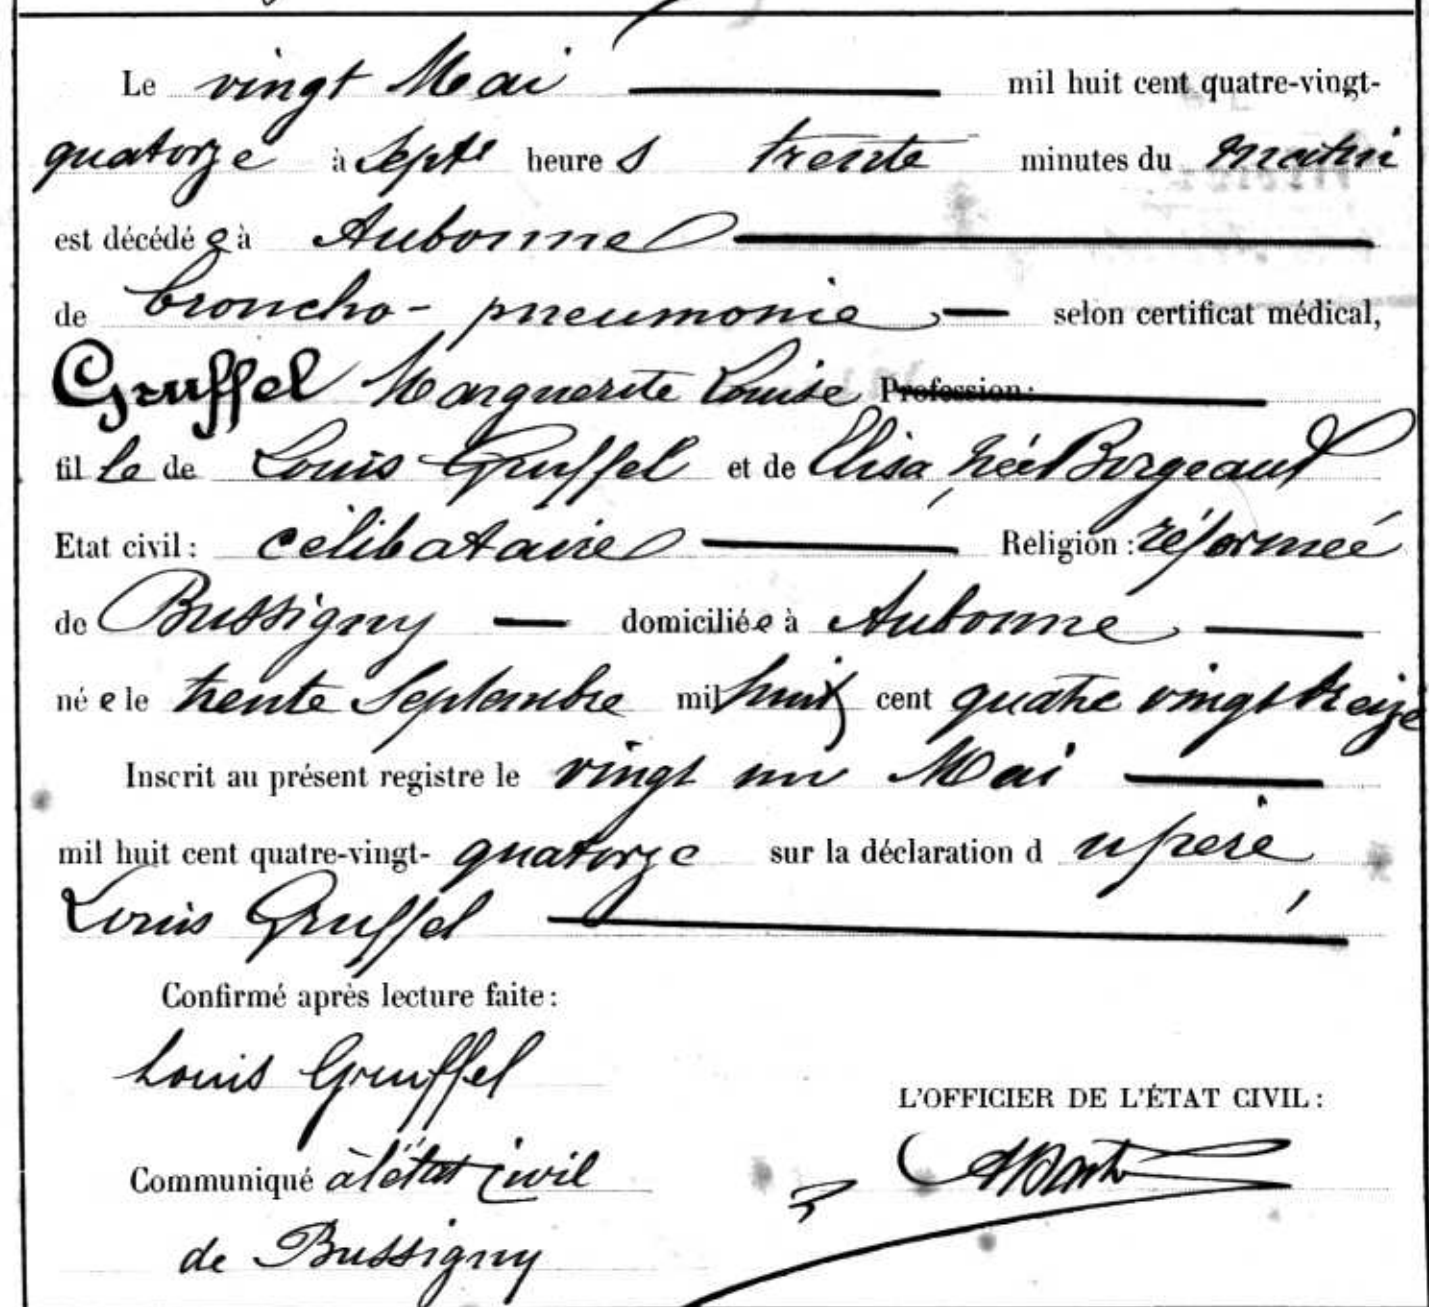 Le vingt Mai mil huit cent quatre-vingt-
quatorze à sept heures trente minutes du matin
est décédée à Aubonne
de broncho-pneumonie selon certificat médical,
Gruffel Marguerite Louise Profession:
fille de Louis Gruffel et de Elisa, née Borgeaud
Etat civil: célibataire Religion: réformée
de Bussigny domiciliée à Aubonne
née le trente Septembre mil huit cent quatre vingt treize
Inscrit au présent registre le vingt un Mai
mil huit cent quatre-vingt-quatorze sur la déclaration du père,
Louis Gruffel
Confirmé après lecture faite:
Louis Gruffel
L'OFFICIER DE L'ÉTAT CIVIL:
Communiqué à l'état civil
de Bussigny